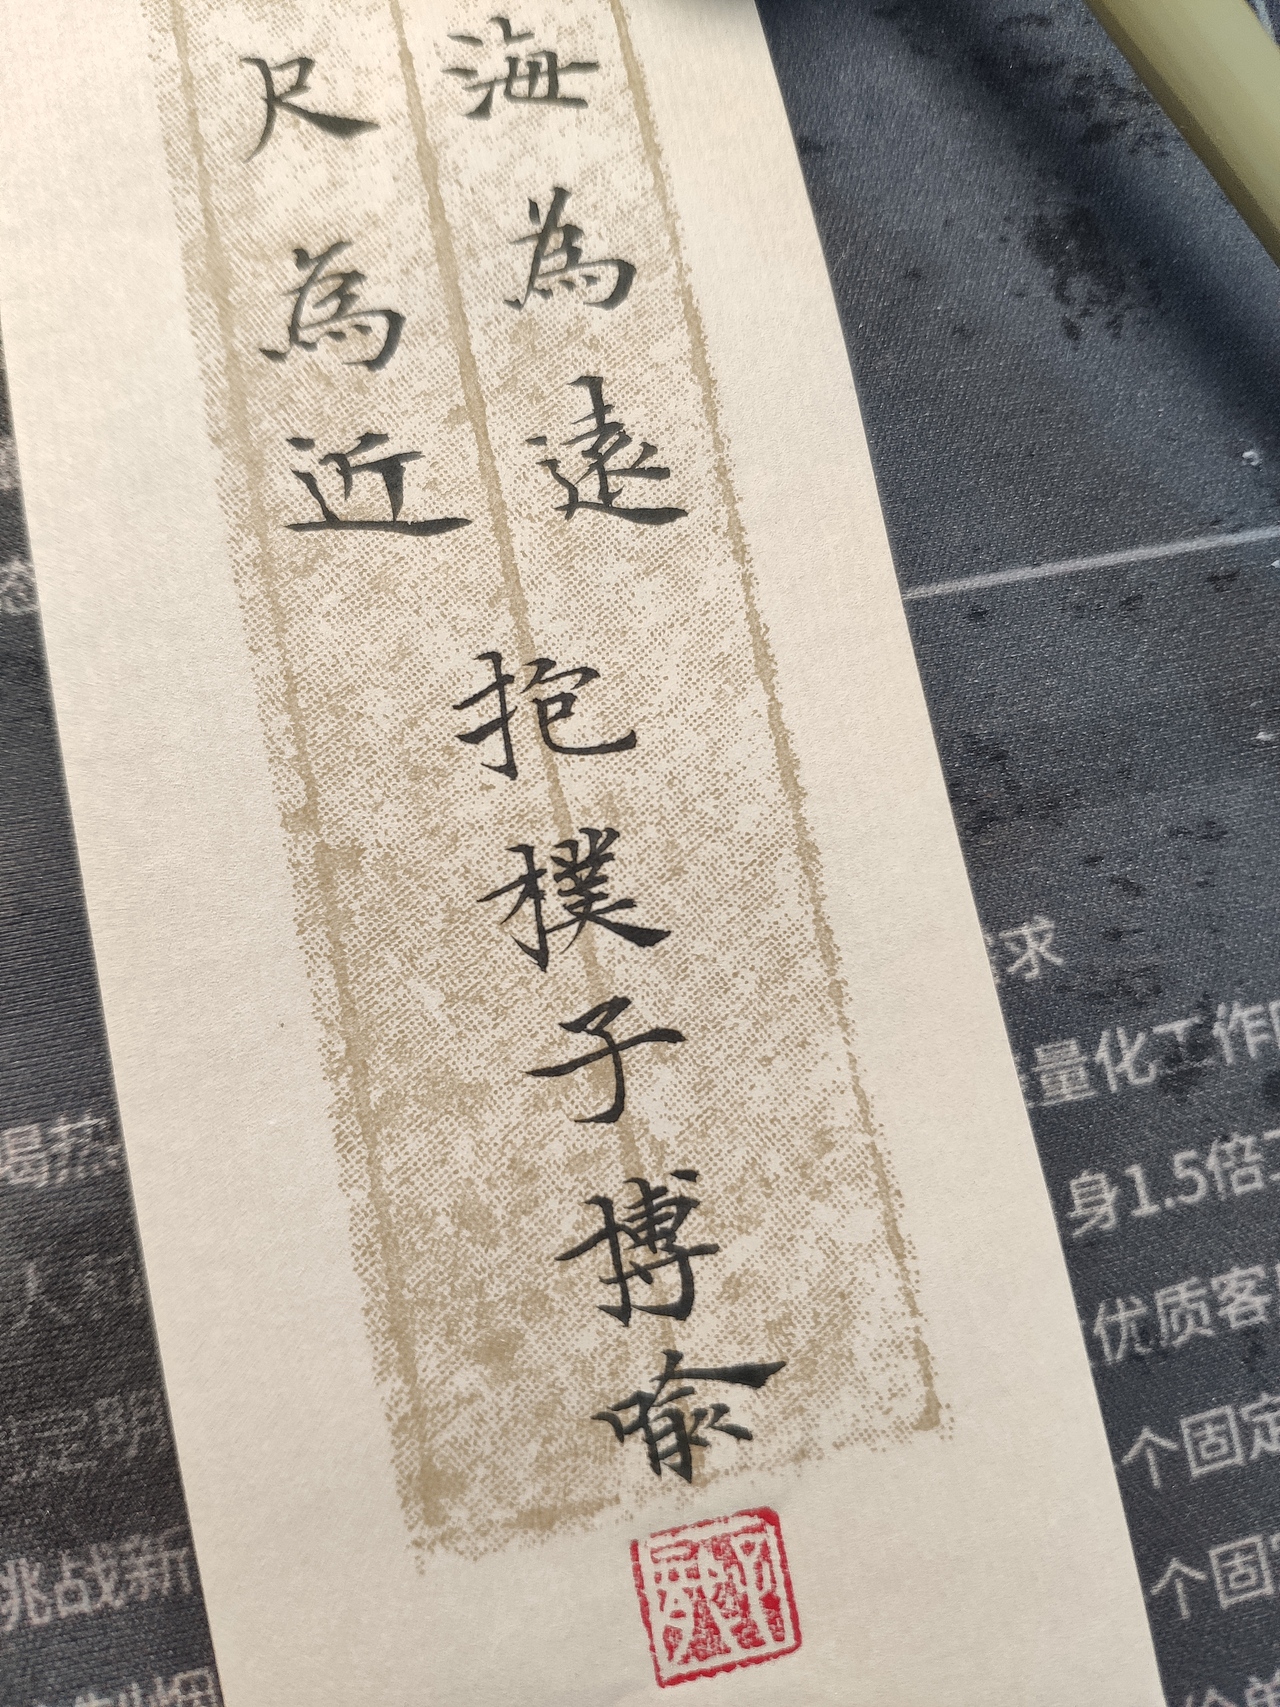 海為遠
尺為近
抱樸子博喻
求
量化工作
身1.5倍工
优质客
个固定
个固
挑战新